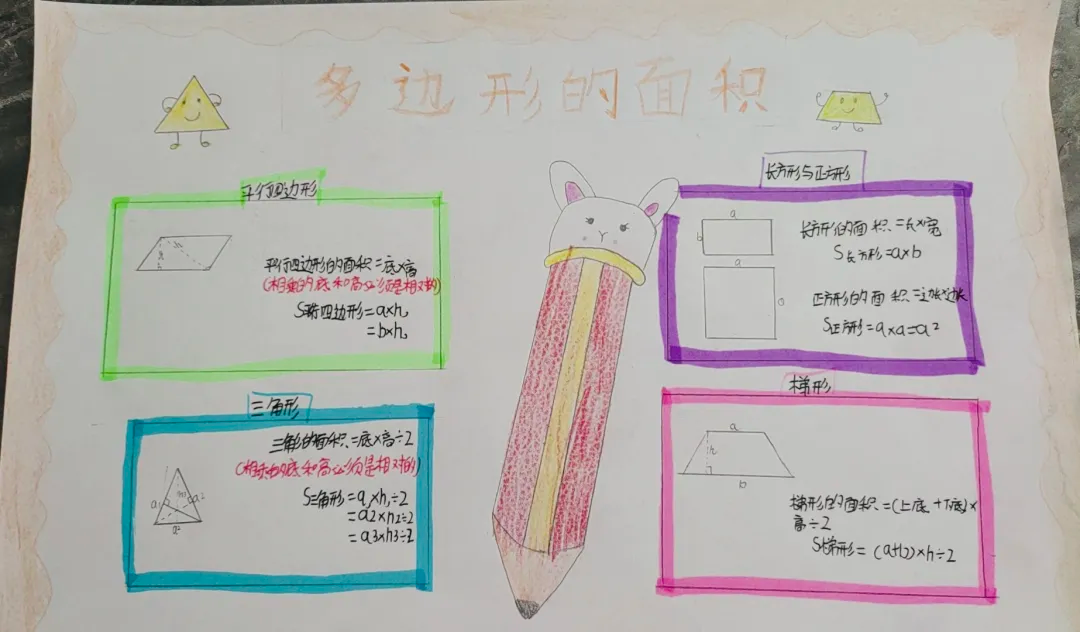 多边形的面积
平行四边形
平行四边形的面积=底×高
(相乘的底和高必须是相对的)
=b×h
长方形与正方形
a
b
长方形的面积=长×宽
S长方形=a×b
a
a
正方形的面积=边长×边长
S正方形=a×a=a²
三角形
三角形的面积=底×高÷2
(相乘的底和高必须是相对的)
S三角形=a,×h,÷2
=a2×h2÷2
=a3×h3÷2
梯形
a
h
b
梯形的面积=(上底+下底)×
高÷2
S梯形=(a+b)×h÷2